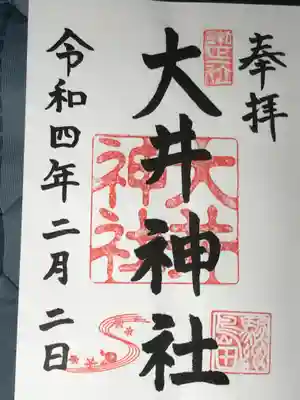 奉拝
大井神社
大井神社
島田
令和四年二月二日